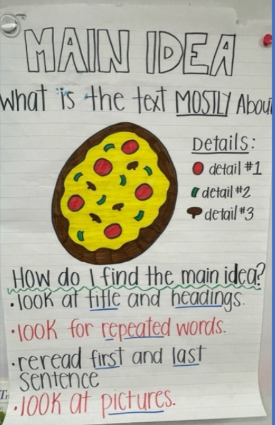 MAIN IDEA
What is the text MOSTLY About
Details:
detail #1
detail #2
detail #3
How do I find the main idea?
• look at title and headings.
• look for repeated words.
• reread first and last
sentence
• look at pictures.